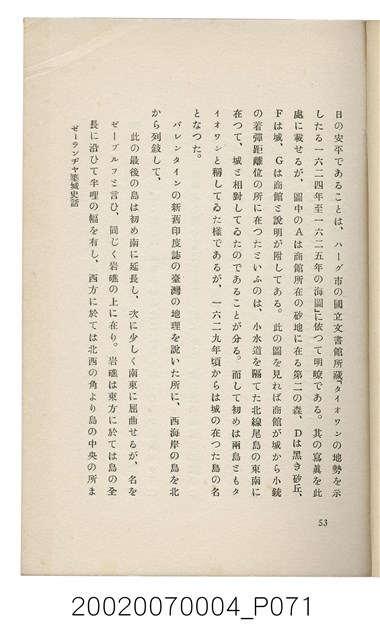 日の安平であることは、ハーグ市の國立文書館所藏『タイオワンの地勢を示
したる一六二四年至一六二五年の海圖』に依つて明瞭である。其の寫眞を此
處に載せるが、圖中のAは商館所在の砂地に在る第二の森、Dは黑き砂丘、
Fは城、Gは商館と説明が附してある。此の圖を見れば商館が城から小銃
の着彈距離位の所に在つたといふのは、小水道を隔てた北線尾島の東南に
在つて、城と相對してゐたのであることが分る。而して初めは兩島ともタ
イオワンと稱してゐた樣であるが、一六二九年頃からは城の在つた島の名
となつた。
バレンタインの新舊印度誌の臺灣の地理を説いた所に、西海岸の島を北
から列敍して、
此の最後の島は初め南に延長し、次に少しく南東に屈曲せるが、名を
ゼーブルフと言ひ、同じく岩礁の上に在り。岩礁は東方に於ては島の全
長に沿ひて半哩の幅を有し、西方に於ては北西の角より島の中央の所ま
ゼーランヂヤ築城史話
53
20020070004_P071